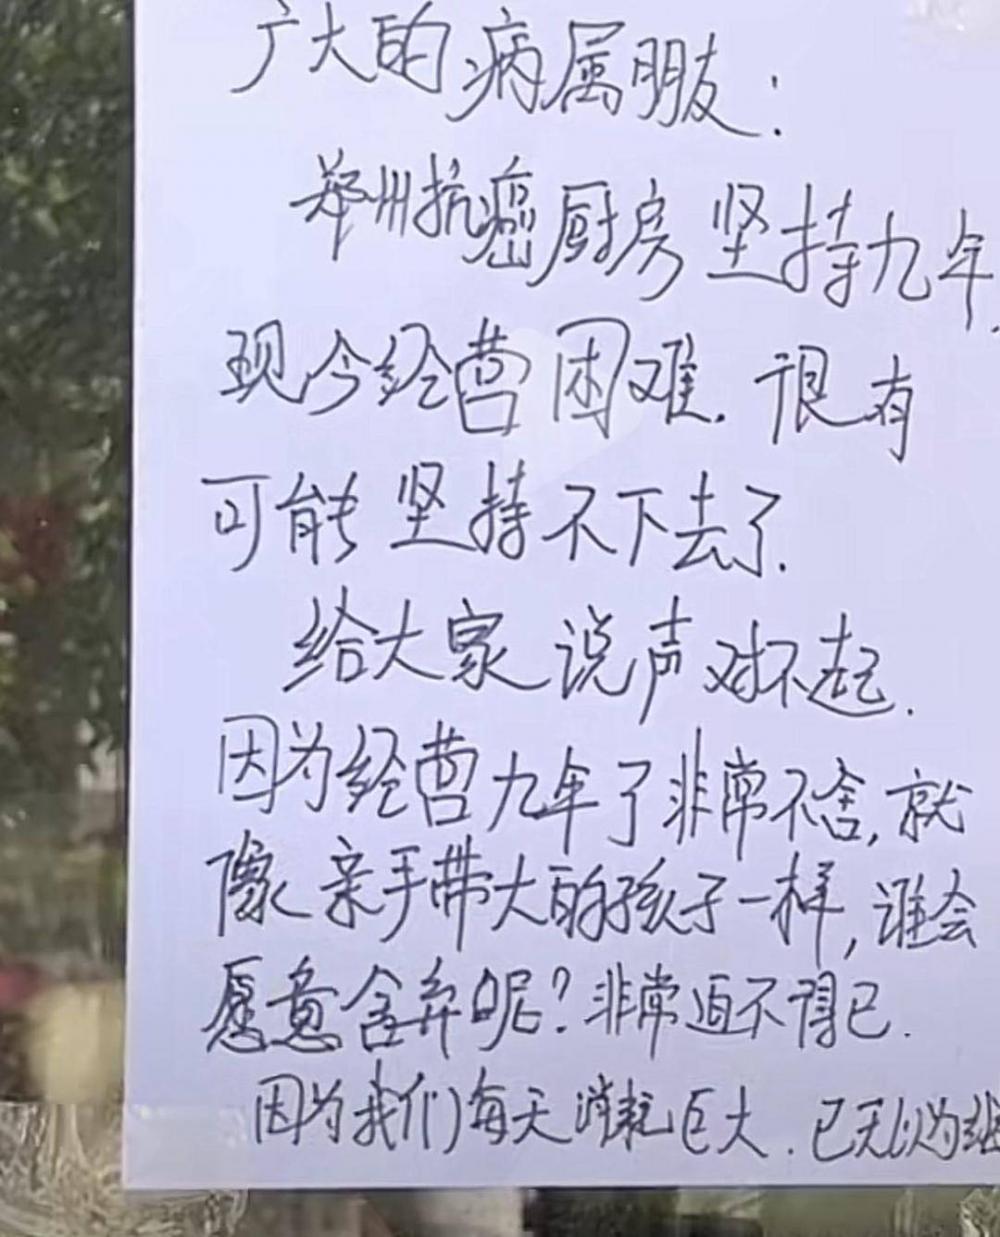 广大的病属朋友：
郑州抗癌厨房坚持九年.
现今经营困难.很有
可能坚持不下去了.
给大家说声对不起.
因为经营九年了非常不舍,就
像亲手带大的孩子一样,谁会
愿意舍弃呢?非常迫不得已.
因为我们每天消耗巨大.已无以为继